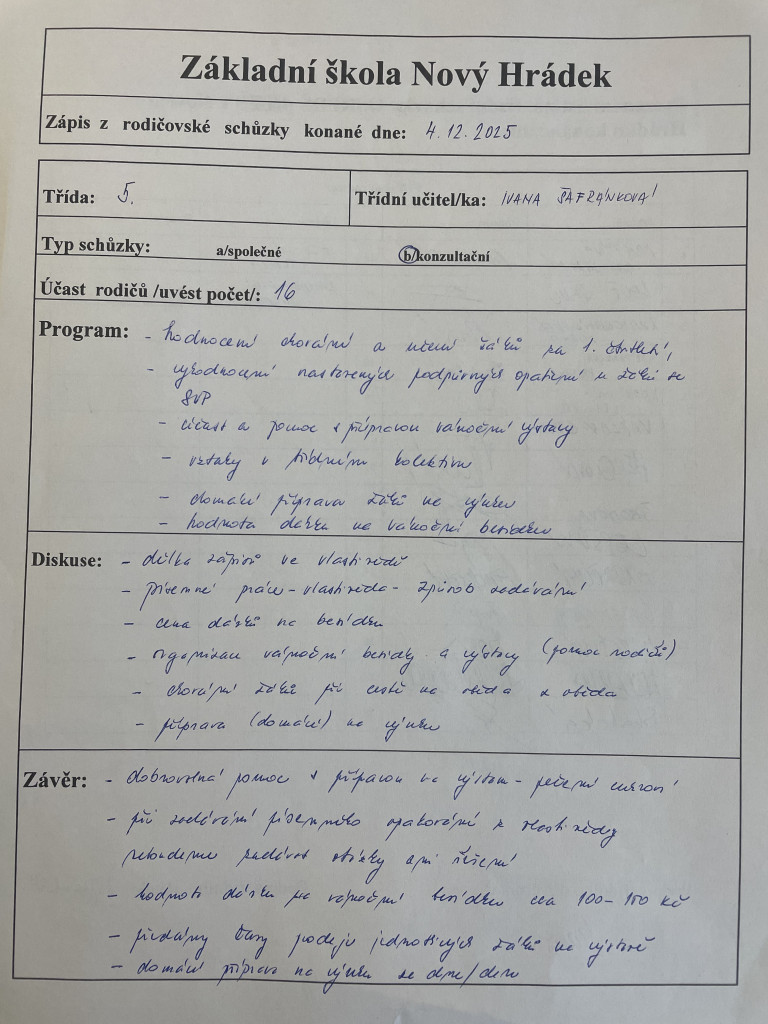 Základní škola Nový Hrádek
Zápis z rodičovské schůzky konané dne: 4.12.2025
Třída: 5. Třídní učitel/ka: IVANA ŠAFRÁNKOVÁ
Typ schůzky: a/společné b/konzultační
Účast rodičů /uvést počet/: 16
Program: - hodnocení chování a učení žáků za 1. čtvrtletí,
- vyhodnocení nastavených podpůrných opatření u žáků se
SVP
- účast a pomoc s přípravou vánoční výstavy
- vztahy v třídním kolektivu
- domácí příprava žáků na výuku
- hodnota dárku na vánoční besídku
Diskuse: - délka zápisů ve vlastivědě
- písemné práce - vlastivěda - způsob zadávání
- cena dárků na besídku
- organizace vánoční besídky a výstavy (pomoc rodičů)
- chování žáků při cestě na oběd a z oběda
- příprava (domácí) na výuku
Závěr: - dobrovolná pomoc s přípravou na výstavu - pečení cukroví
- při zadávání písemného opakování z vlastivědy
nebudeme zadávat otázky ani řešení
- hodnota dárku na vánoční besídku cca 100-150 Kč
- předány časy prodeje jednotlivých žáků na výstavě
- domácí příprava na výuku ze dne/den